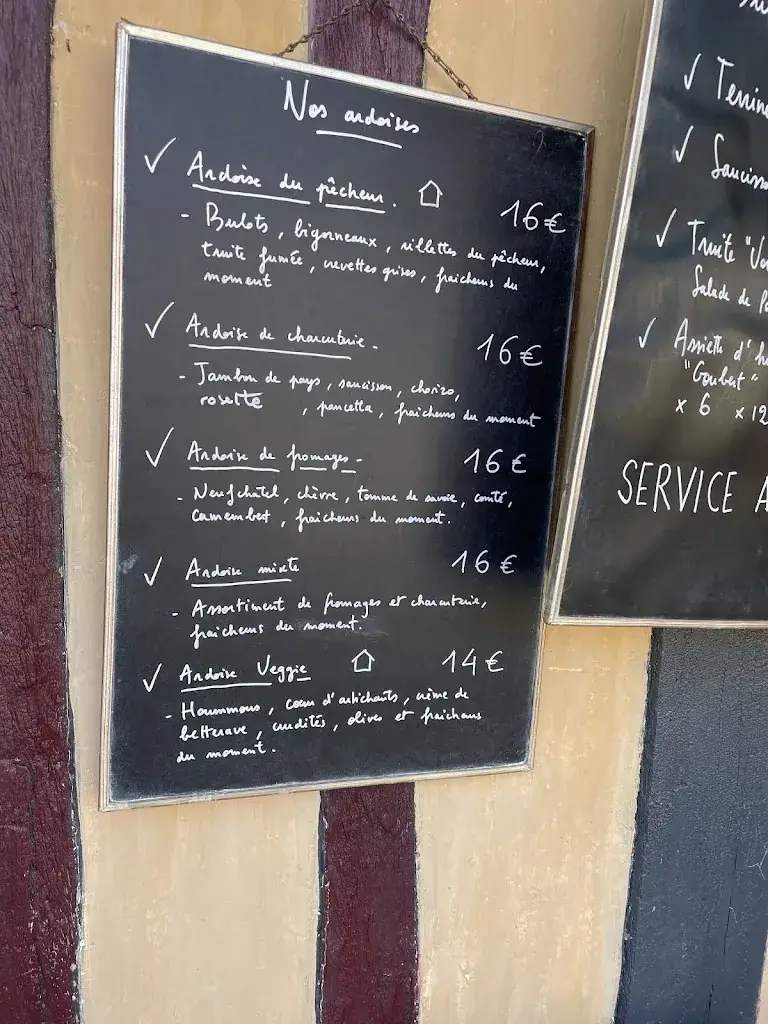 Nos ardoises
✓ Ardoise du pêcheur. 16€
- Bulots, bigorneaux, rillettes du pêcheur,
truite fumée, crevettes grises, fraicheurs du
moment
✓ Ardoise de charcuterie. 16€
- Jambon de pays, saucisson, chorizo,
rosette, pancetta, fraicheurs du moment
✓ Ardoise de fromages. 16€
- Neufchatel, chèvre, tomme de savoie, comté,
Camembert, fraicheurs du moment.
✓ Ardoise mixte 16€
- Assortiment de fromages et charcuterie,
fraicheurs du moment.
✓ Ardoise Veggie 14€
- Hoummous, cœur d'artichauts, crème de
betterave, crudités, olives et fraicheurs
du moment.
✓ Terrine
✓ Saucisso
✓ Truite "Vo
Salade de Po
✓ Assiette d'h
"Goubert"
x 6 x 12
SERVICE A